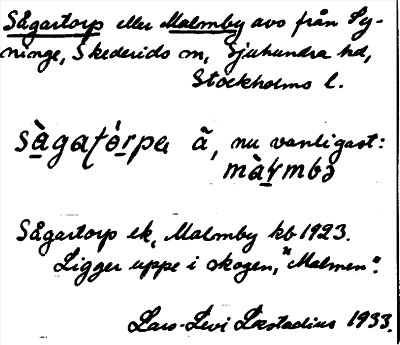 Sågartorp eller Malmby avs från Ly-
ninge, Skederids sn, Sjuhundra hd,
Stockholms l.
sàgatórpa ã, nu vanligast:
màɽmbə
Sågartorp ek, Malmby kb 1923.
Ligger uppe i skogen, "Malmen".
Lars-Levi Læstadius 1933.